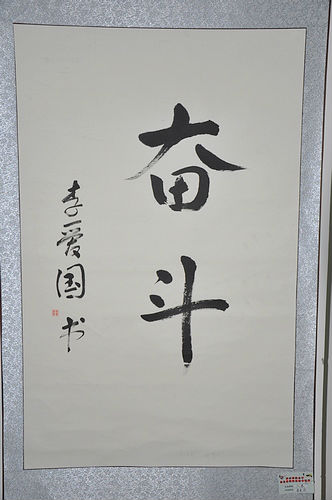 奋斗
李爱国书